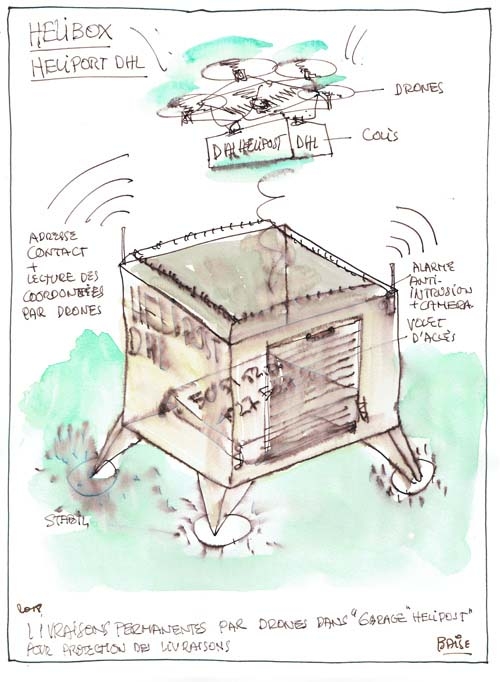 HELIBOX
HELIPORT DHL
DRONES
COLIS
DHL HELIPOST
DHL
ADRESSE
CONTACT
+
LECTURE DES
COORDONNÉES
PAR DRONES
ALARME
ANTI-
INTRUSION
+ CAMERA
VOLET
D'ACCÈS
HELIPOST
DHL
STABIL
2018
LIVRAISONS PERMANENTES PAR DRONES DANS "GARAGE" HELIPOST"
POUR PROTECTION DES LIVRAISONS